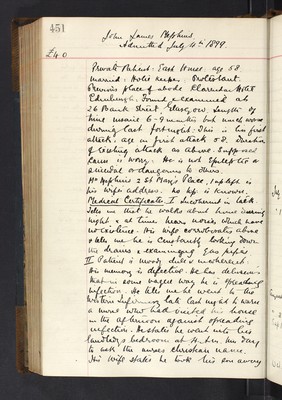 451
John James Hopkins
Admitted July 4th 1899.
£40
Private Patient: East House. age 58.
Married: Hotel keeper. Protestant.
Previous place of abode Clarendon Hotel
Edinburgh: Found & examined at
26 Bank Street Glasgow. Length of
time insane 6-9 months but much worse
during last fortnight: This is his first
attack: age on first attack 58. Duration
of existing attack as above: Supposed
cause is worry. He is not Epileptic or
suicidal or dangerous to others.
Hopkins 2 St Mary's Place,
his wife's address. No is known.
Medical Certificates. I Incoherent in talk.
tells me that he walks about house during
night & at times hears voices which have
no existence. His wife corroborates above
& tells me he is Constantly looking down
the drains & examining Gas pipes
II Patient is moody, dull & incoherent.
His memory is defective. He has delusions
that in some vague way he is spreading
infection. He tells me he went to the
Western Infirmary late last night to warn
a nurse who had visited his house
in the afternoon against spreading
infection. He states he went into his
landlady's bedroom at 4 a.m. this day
to ask the nurses christian name.
His wife states he took his son away